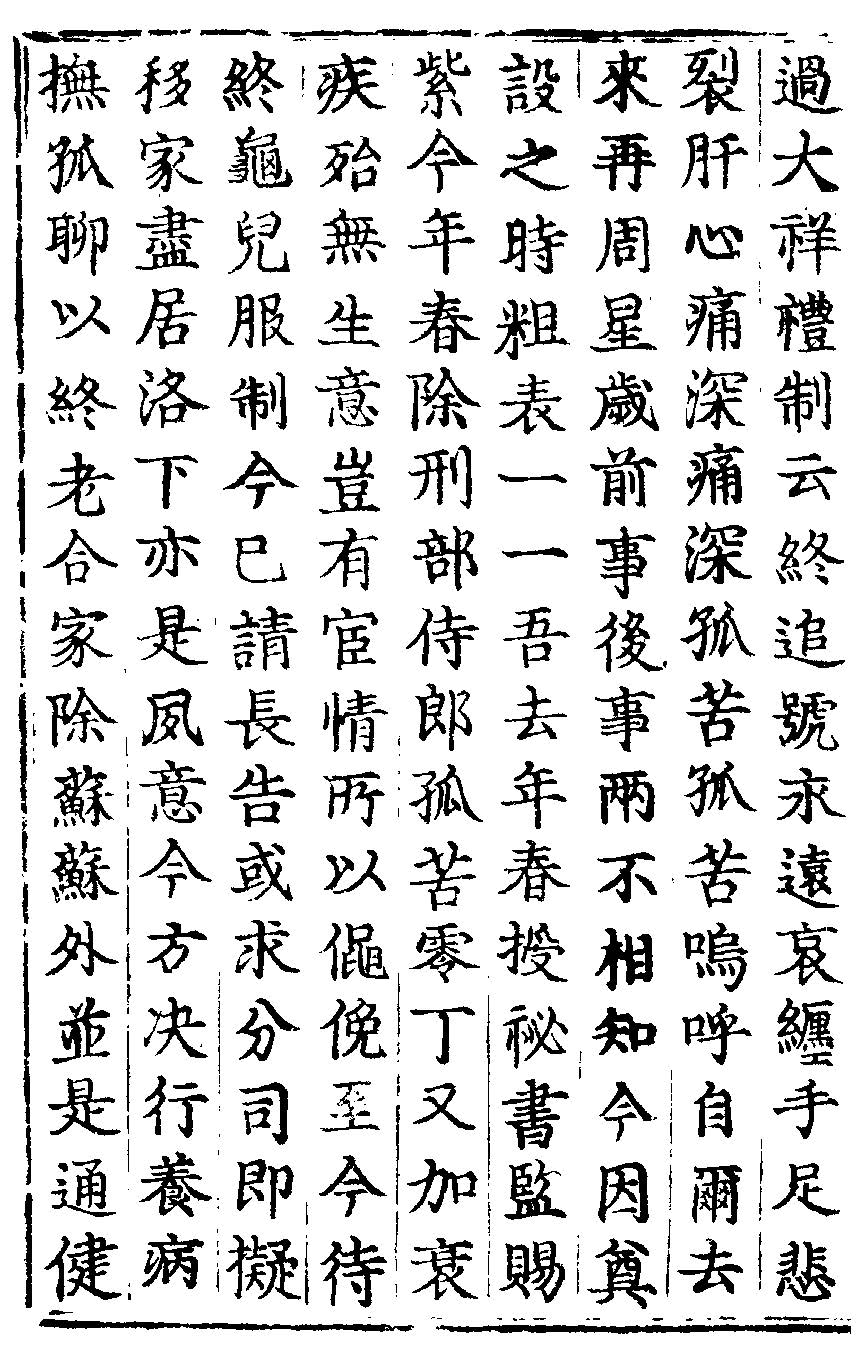 過大祥禮制云終追號永遠哀纏手足悲
裂肝心痛深痛深孤苦孤苦嗚呼自爾去
來再周星歲前事後事兩不相知今因奠
設之時粗表一一吾去年春授祕書監賜
紫今年春除刑部侍郎孤苦零丁又加衰
疾殆無生意豈有宦情所以僶俛至今待
終龜兒服制今已請長告或求分司即擬
移家盡居洛下亦是夙意今方决行養病
撫孤聊以終老合家除蘇蘇外並是通健